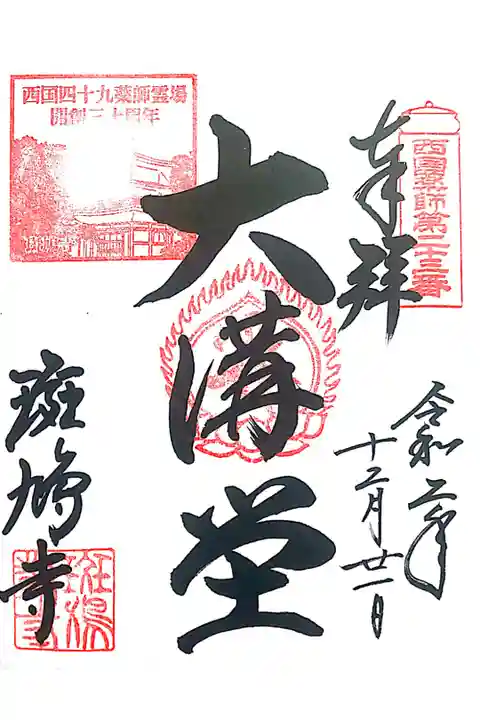 西国薬師第二十三番
奉拝
令和二年
十二月廿一日
大講堂
西国四十九薬師霊場
開創三十周年
斑鳩寺